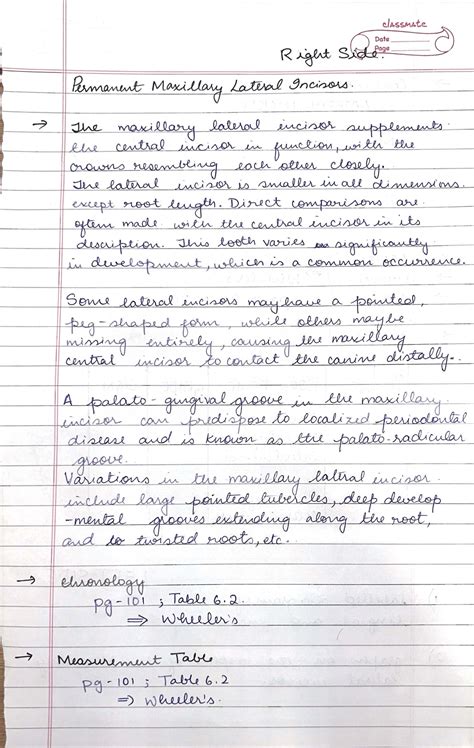 classmate
Date
Page
Right Side.
Permanent Maxillary Lateral Incisors.
→ The maxillary lateral incisor supplements
the central incisor in function, with the
crowns resembling each other closely.
The lateral incisor is smaller in all dimensions
except root length. Direct comparisons are
often made with the central incisor in its
description. This tooth varies significantly
in development, which is a common occurrence.
Some lateral incisors may have a pointed,
peg-shaped form, while others maybe
missing entirely, causing the maxillary
central incisor to contact the canine distally.
A palato-gingival groove in the maxillary
incisor can predispose to localized periodontal
disease and is known as the palato-radicular
groove.
Variations in the maxillary lateral incisor
include large pointed tubercles, deep develop
-mental grooves extending along the root,
and twisted roots, etc.
→ Chronology
pg-101 ; Table 6.2.
⇒ Wheeler's
→ Measurement Table
pg-101 ; Table 6.2
⇒ Wheeler's.